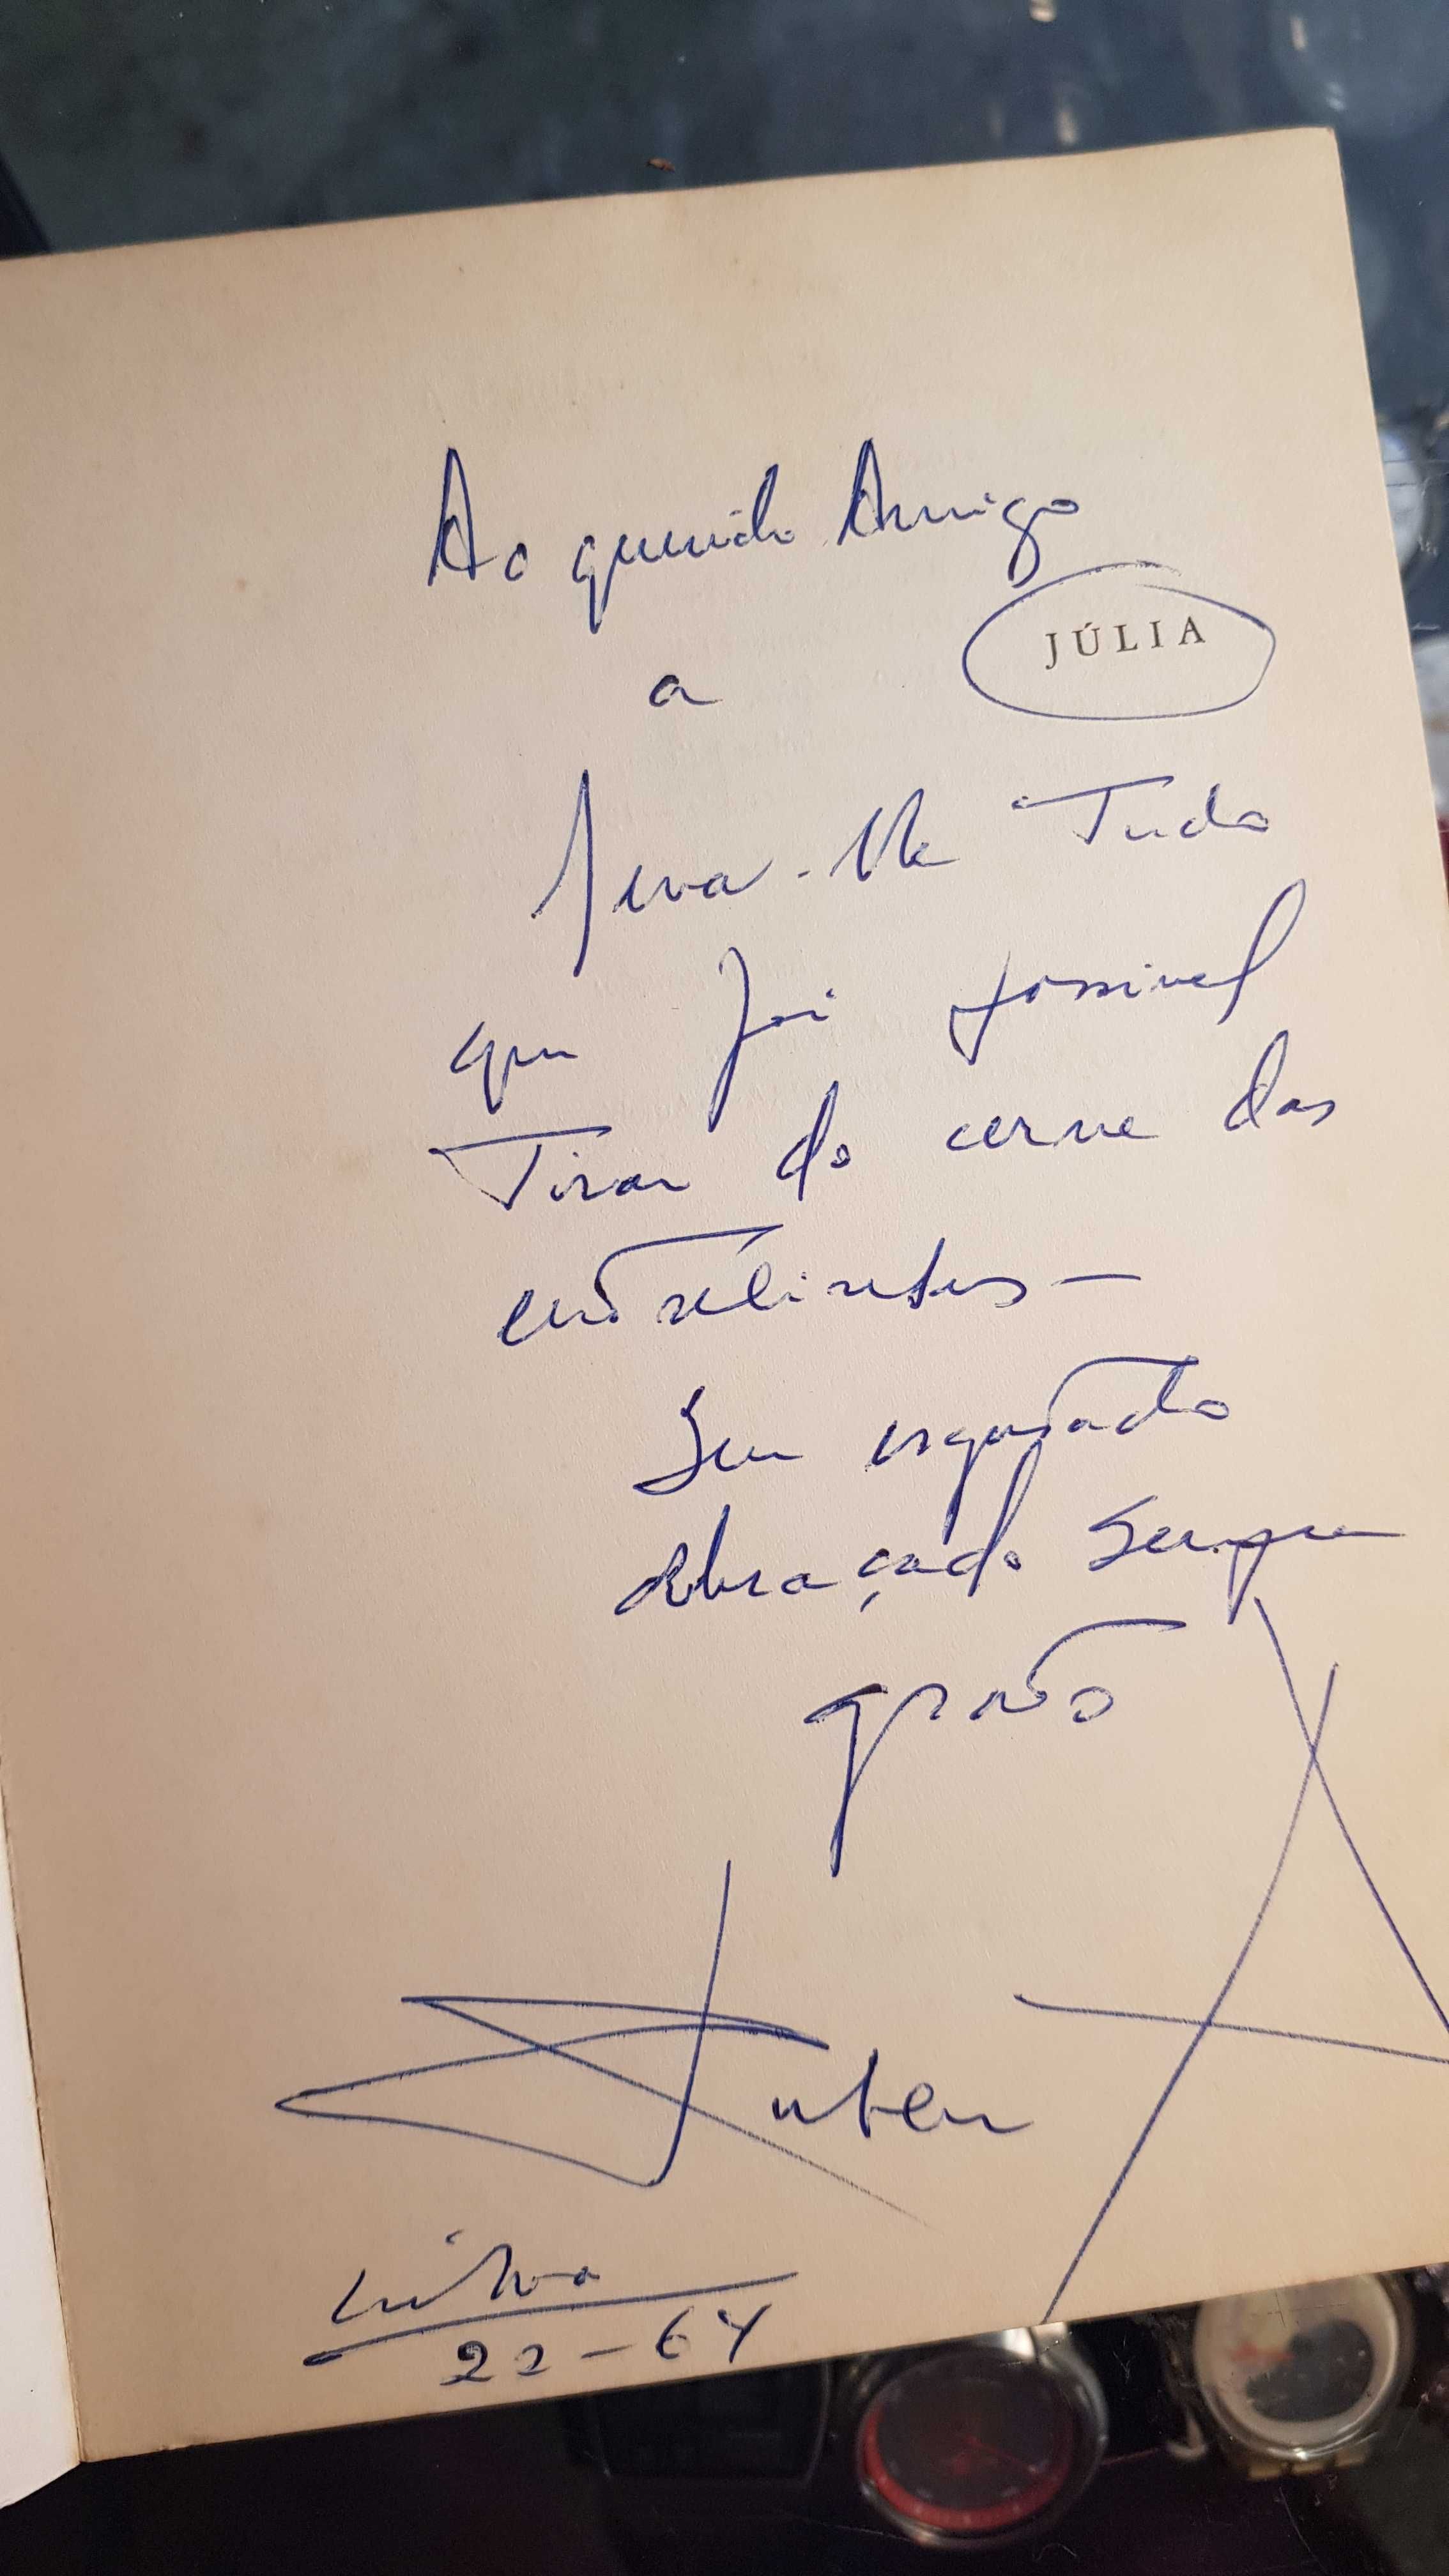 Ao querido Amigo
JÚLIA
a
leva-lhe Tudo
que foi possivel
Tirar do cerne das
Seu
abraçado sempre
grato
Ruben A
22-64